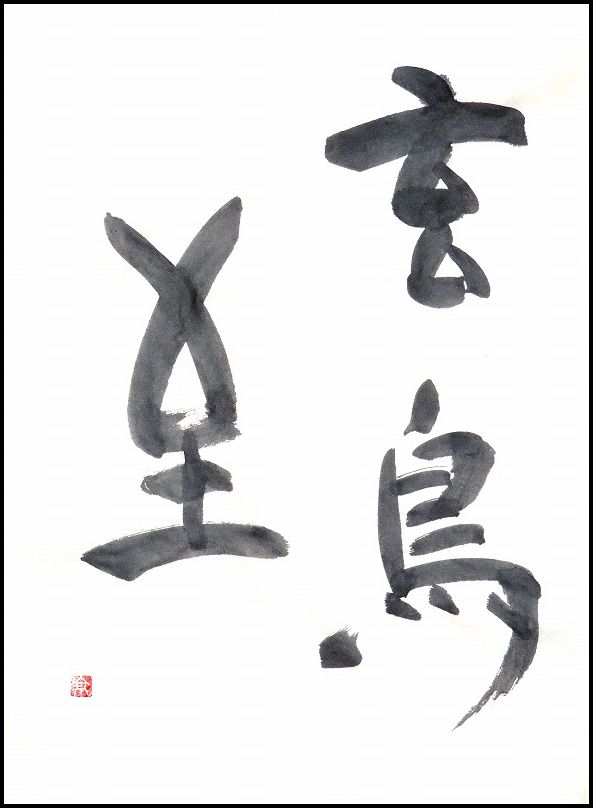 玄鳥
至